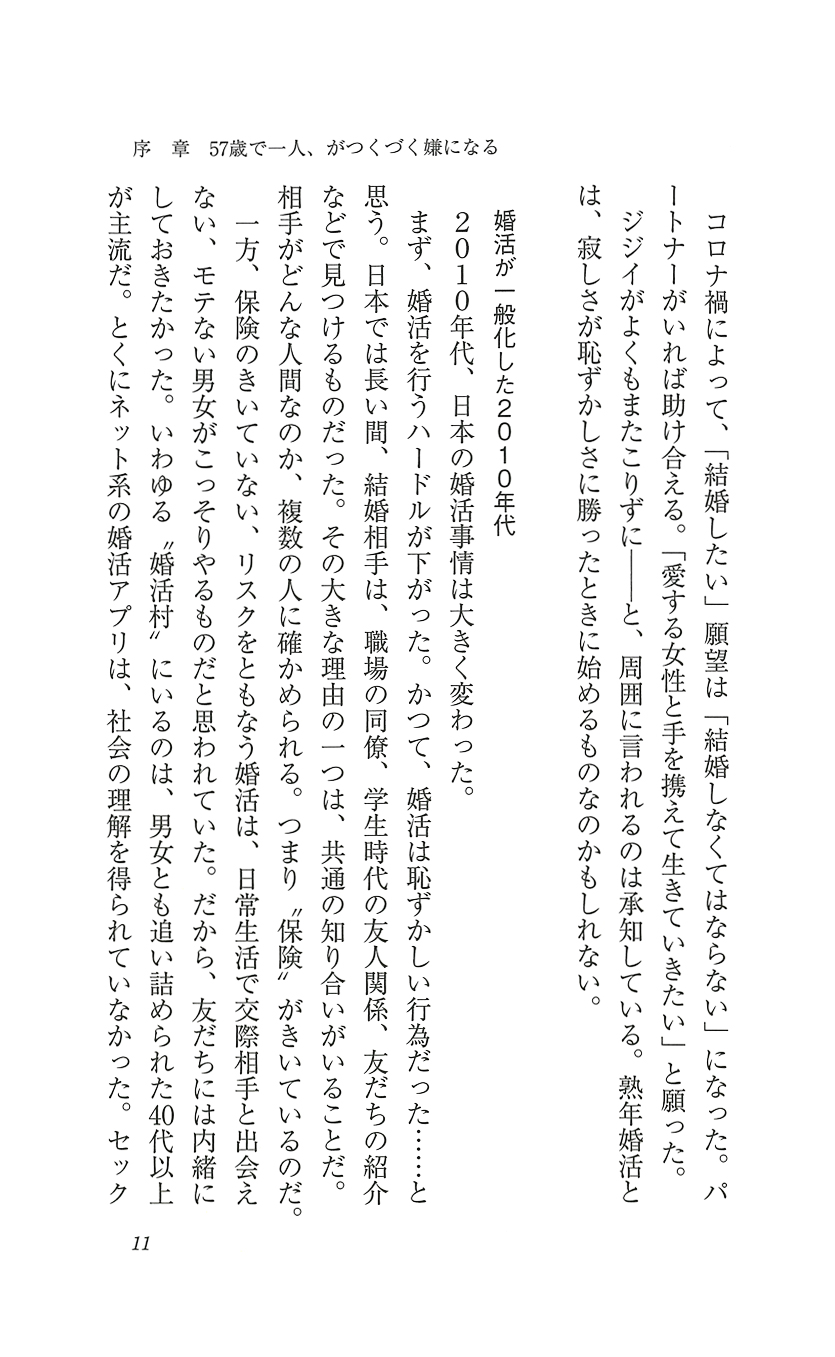 序　章　57歳で一人、がつくづく嫌になる
コロナ禍によって、「結婚したい」願望は「結婚しなくてはならない」になった。パ
ートナーがいれば助け合える。「愛する女性と手を携えて生きていきたい」と願った。
ジジイがよくもまたこりずに――と、周囲に言われるのは承知している。熟年婚活と
は、寂しさが恥ずかしさに勝ったときに始めるものなのかもしれない。
婚活が一般化した２０１０年代
２０１０年代、日本の婚活事情は大きく変わった。
まず、婚活を行うハードルが下がった。かつて、婚活は恥ずかしい行為だった……と
思う。日本では長い間、結婚相手は、職場の同僚、学生時代の友人関係、友だちの紹介
などで見つけるものだった。その大きな理由の一つは、共通の知り合いがいることだ。
相手がどんな人間なのか、複数の人に確かめられる。つまり〝保険〟がきいているのだ。
一方、保険のきいていない、リスクをともなう婚活は、日常生活で交際相手と出会え
ない、モテない男女がこっそりやるものだと思われていた。だから、友だちには内緒に
しておきたかった。いわゆる〝婚活村〟にいるのは、男女とも追い詰められた40代以上
が主流だ。とくにネット系の婚活アプリは、社会の理解を得られていなかった。セック
11